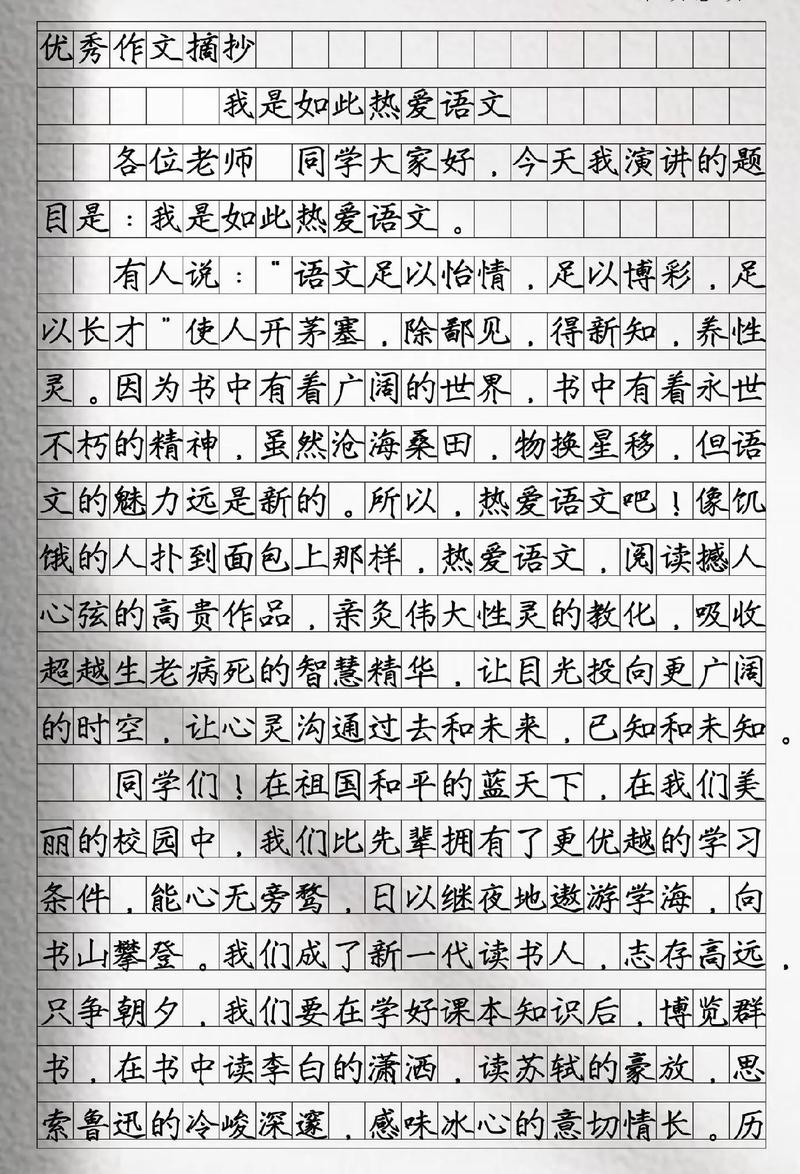 优秀作文摘抄
我是如此热爱语文
各位老师 同学大家好,今天我演讲的题
目是:我是如此热爱语文。
有人说:"语文足以怡情,足以博彩,足
以长才"使人开茅塞,除鄙见,得新知,养性
灵。因为书中有着广阔的世界,书中有着永世
不朽的精神,虽然沧海桑田,物换星移,但语
文的魅力远是新的。所以,热爱语文吧!像饥
饿的人扑到面包上那样,热爱语文,阅读撼人
心弦的高贵作品,亲灸伟大性灵的教化,吸收
超越生老病死的智慧精华,让目光投向更广阔
的时空,让心灵沟通过去和未来,已知和未知。
同学们!在祖国和平的蓝天下,在我们美
丽的校园中,我们比先辈拥有了更优越的学习
条件,能心无旁骛,日以继夜地遨游学海,向
书山攀登。我们成了新一代读书人,志存高远,
只争朝夕,我们要在学好课本知识后,博览群
书,在书中读李白的潇洒,读苏轼的豪放,思
索鲁迅的冷峻深邃,感味冰心的意切情长。历